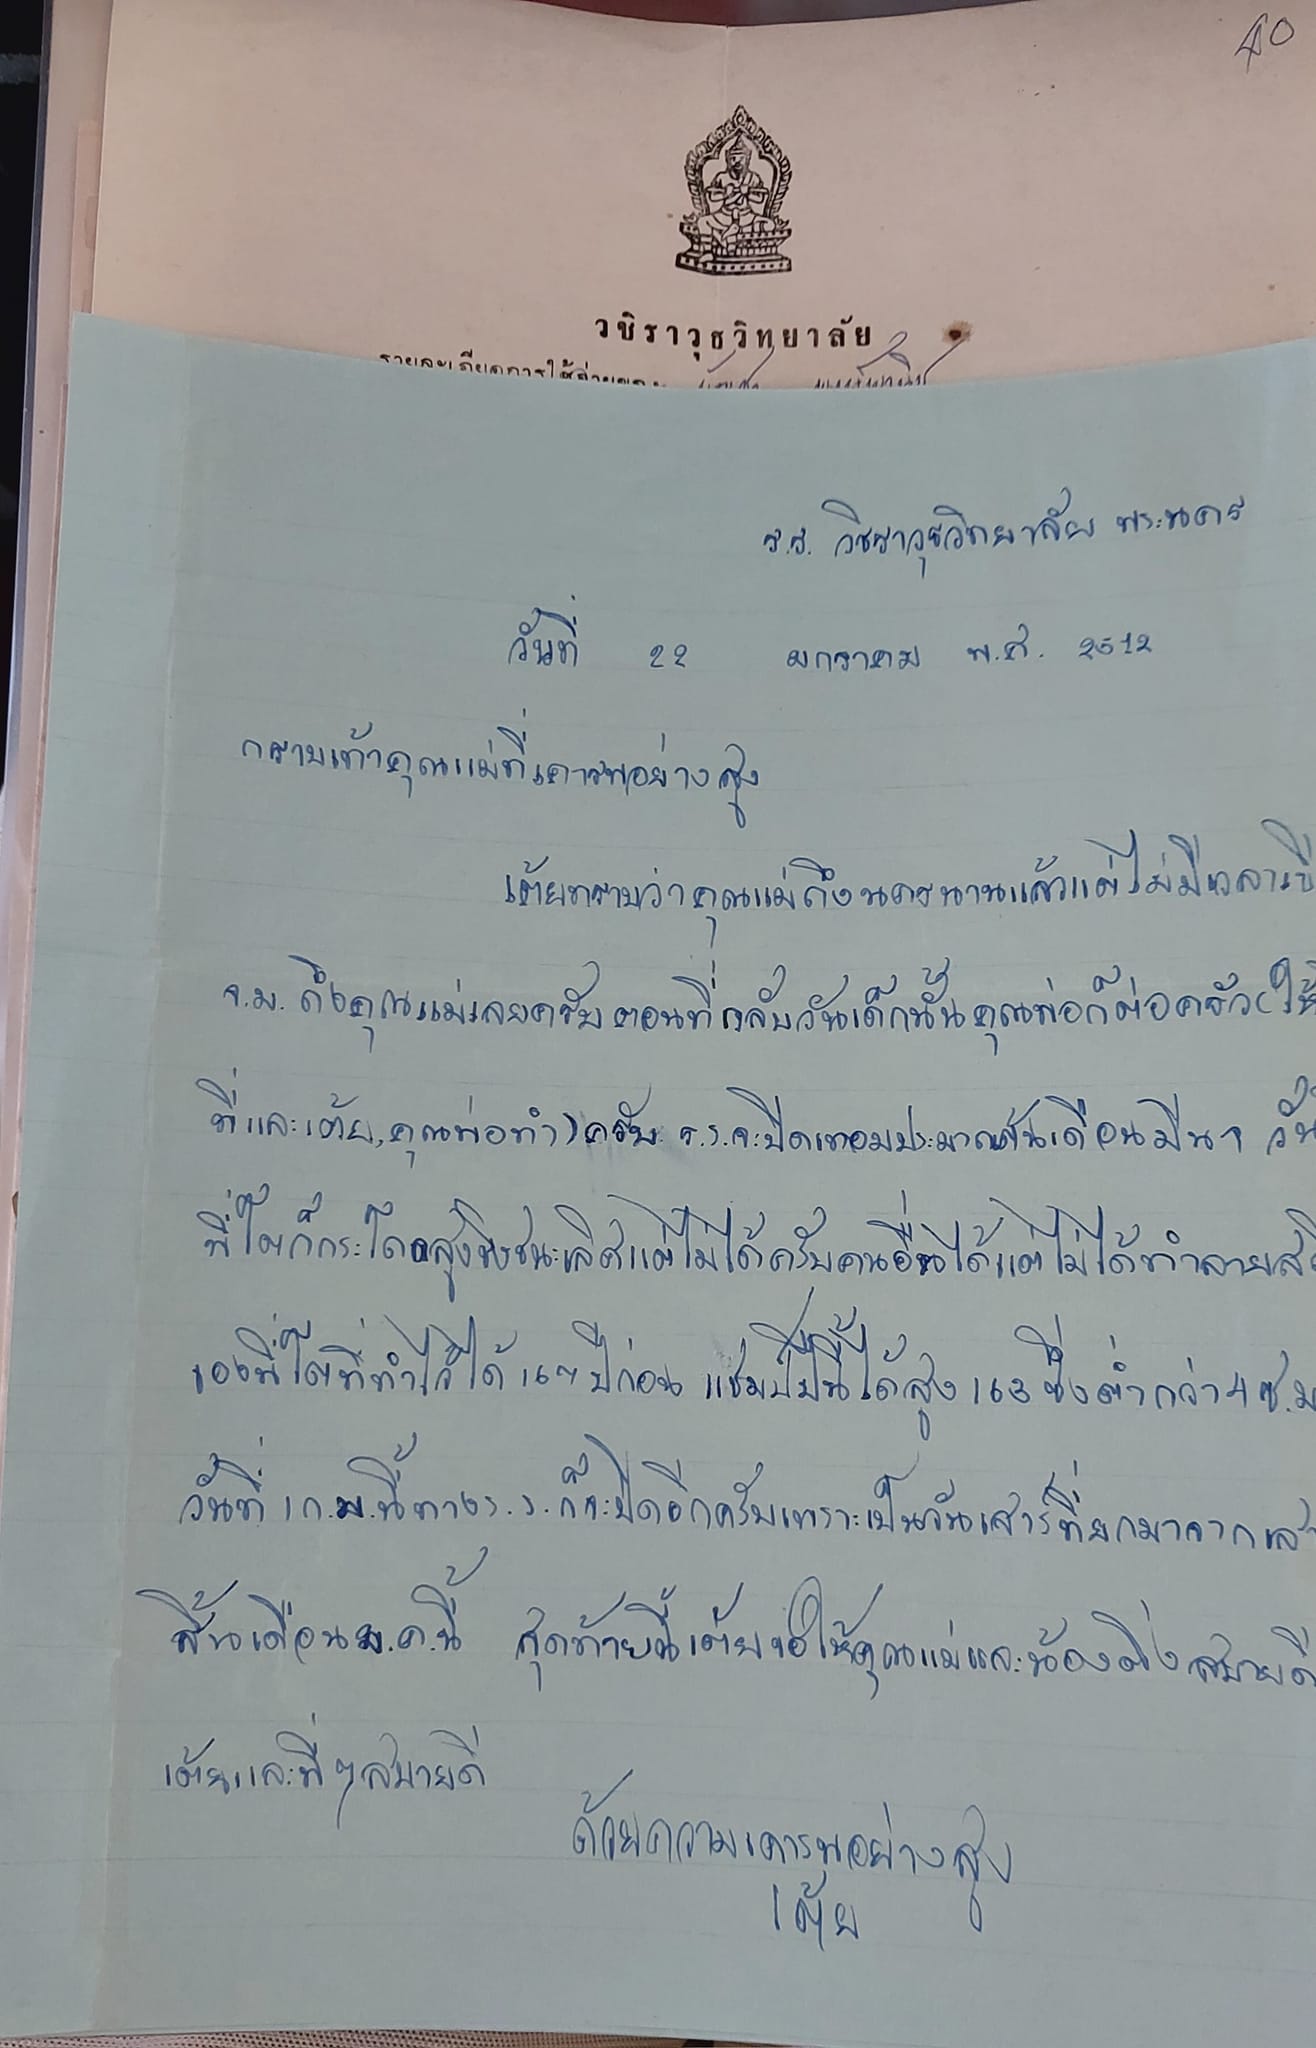 40
วชิราวุธวิทยาลัย
รายละเอียดการใช้จ่ายของ
ร.ร. วชิราวุธวิทยาลัย พระนคร
วันที่ 22 มกราคม พ.ศ. 2512
กราบเท้าคุณแม่ที่เคารพอย่างสูง
เต้ยทราบว่าคุณแม่ถึงนครนานแล้วแต่ไม่มีเวลาเขี
จ.ม. ถึงคุณแม่เลยครับ ตอนที่กลับวันเด็กนั้นคุณพ่อก็ต่อครัว(ให้
ที่และเต้ย, คุณพ่อทำ) ครับ ร.ร. จะปิดเทอมประมาณต้นเดือนมีนา วัน
พี่โตก็กระโดดสูงชิงชนะเลิศแต่ไม่ได้ครับคนอื่นได้แต่ไม่ได้ทำลายสถิ
ของพี่โตที่ทำไว้ได้ ปีก่อน แชมป์ปีนี้ได้สูง 163 ซึ่งต่ำกว่า 4 ซ.ม
วันที่ 1 ก.พ.นี้ทาง ร.ร. ก็จะปิดอีกครับเพราะเป็นวันเสาร์ที่ยกมาจากเส
สิ้นเดือน ม.ค.นี้ สุดท้ายนี้เต้ยขอให้คุณแม่และน้องติ่งสบายดี
เต้ยและพี่ๆสบายดี
ด้วยความเคารพอย่างสูง
เต้ย